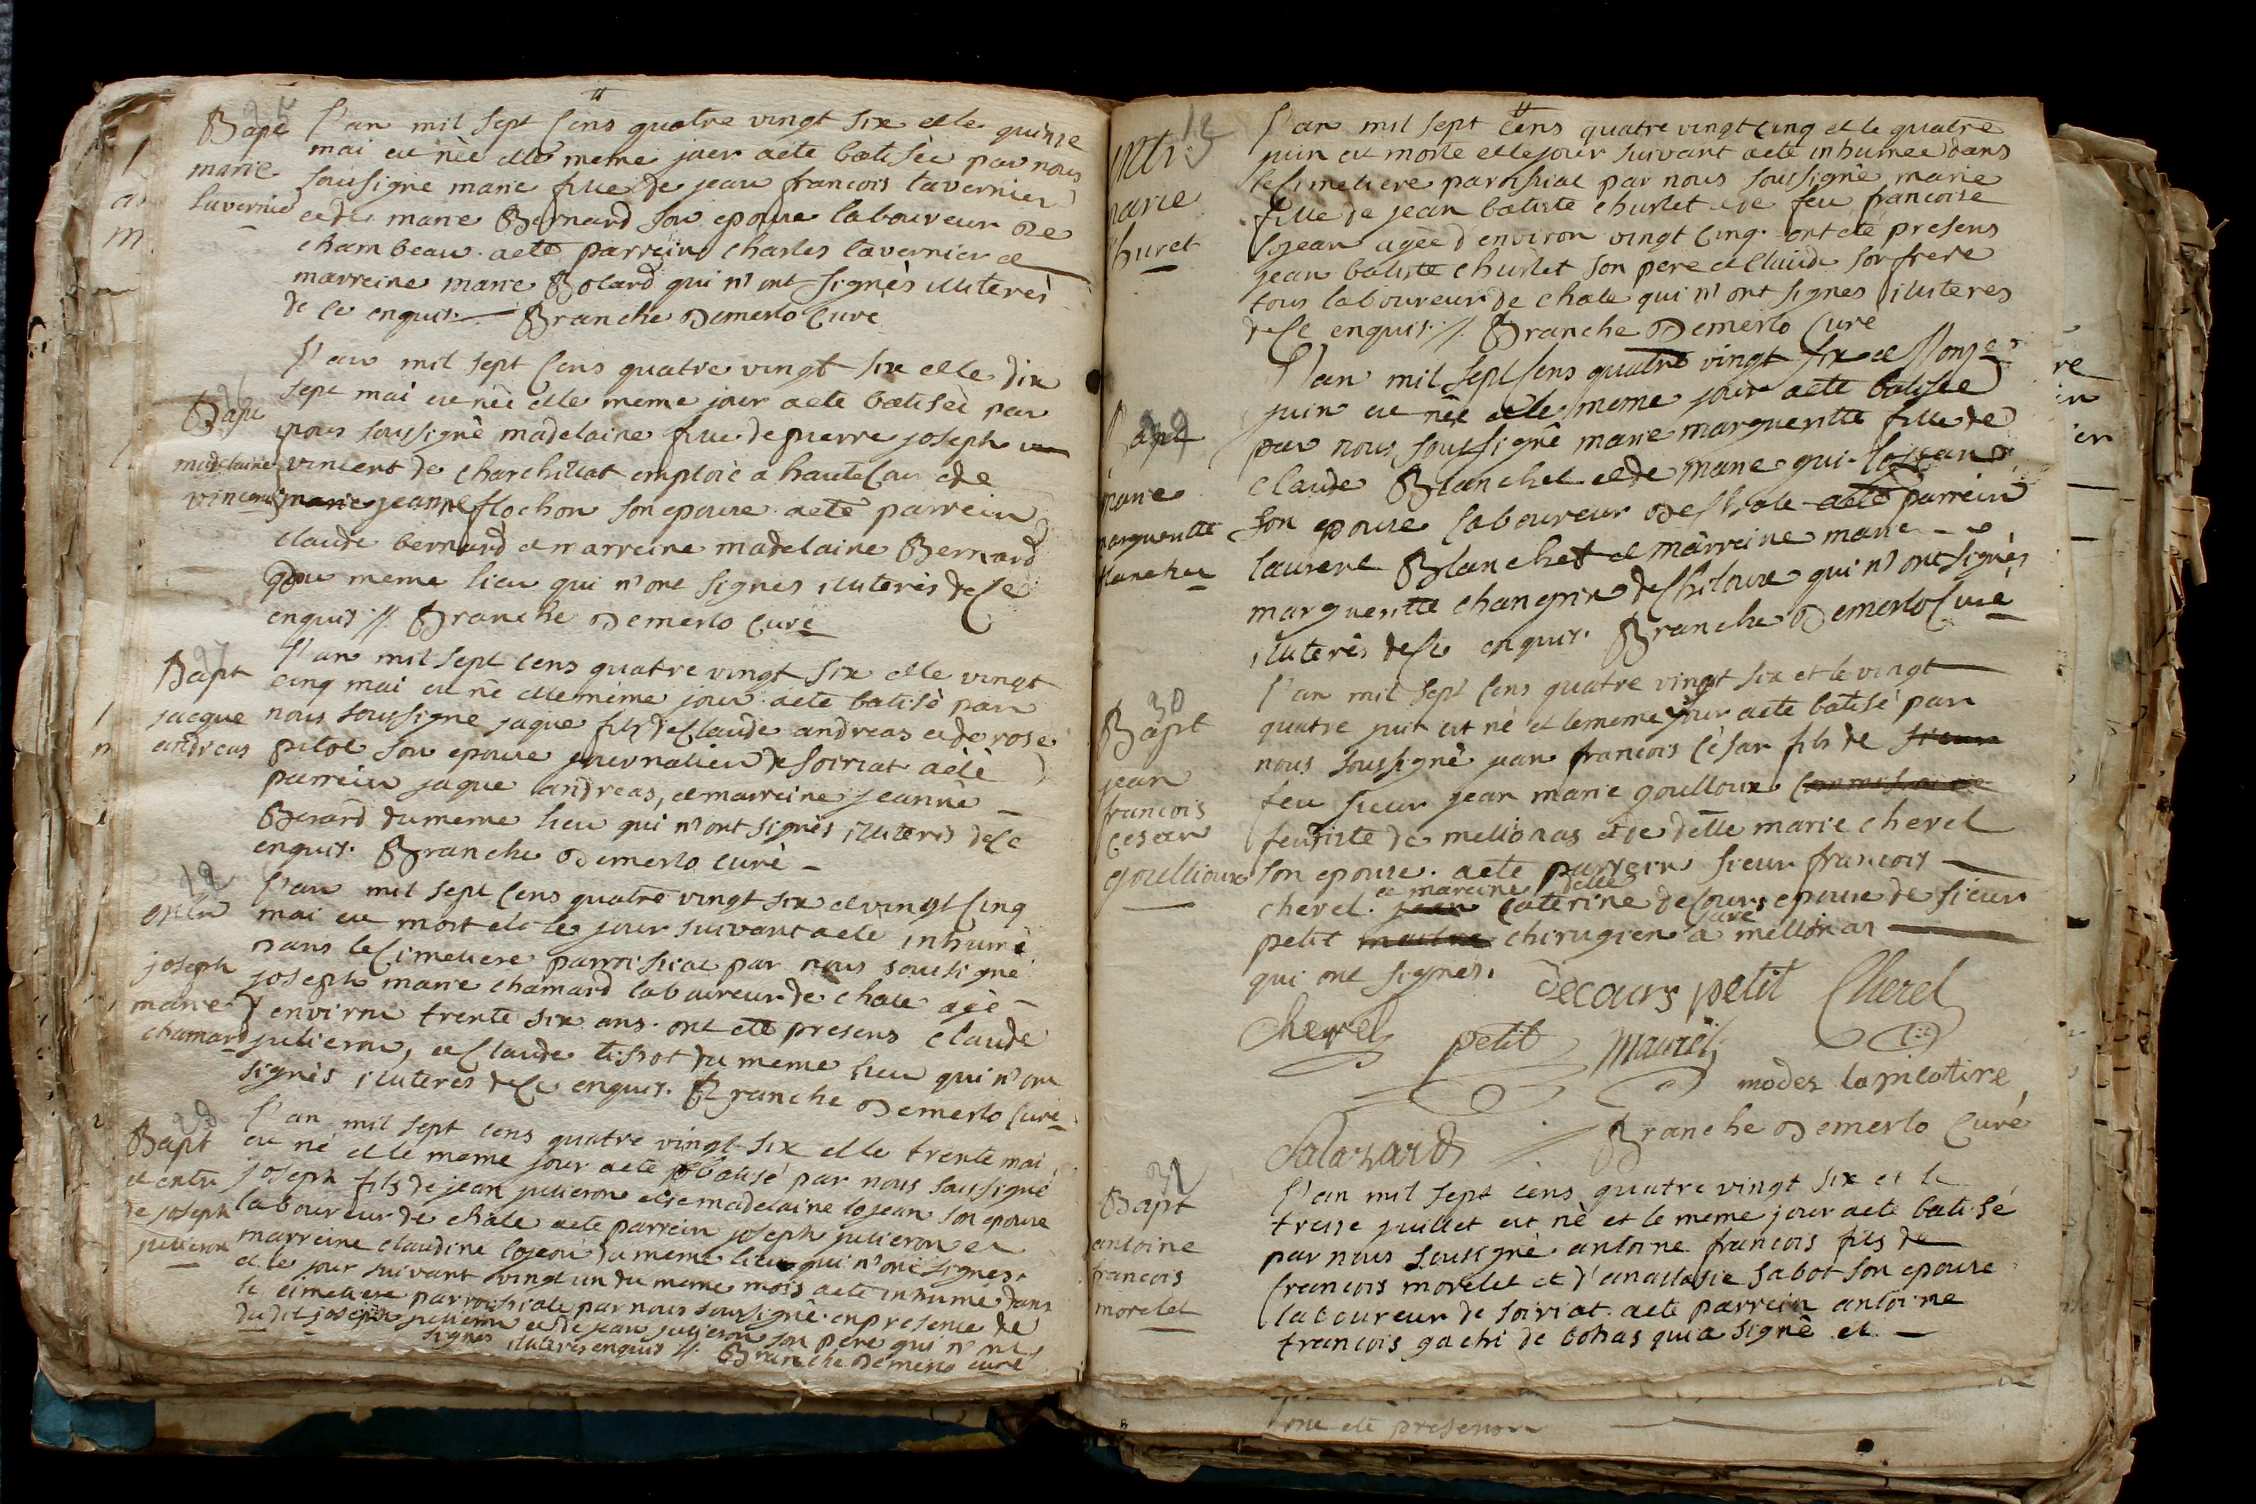 Bapt
marie
tavernier
l'an mil sept cens quatre vingt six et le quinze
mai est née et le meme jour a eté batisée par nous
soussigné marie fille de jean francois tavernier
et de marie Bernard son epouse laboureur de
chambeau a eté parrein charles tavernier et
marreine marie Bolard qui n'ont signès illiterès
de ce enquis. Branche Demerlo curé
Bapt
madelaine
vincent
l'an mil sept cens quatre vingt six et le dix
sept mai est née et le meme jour a eté batiseé par
nous soussignè madelaine fille de pierre joseph
vincent de charchillat emploiè a hautecour et de
marie jeanne flochon son epouse a eté parrein
claude bernard et marreine madelaine Bernard
du meme lieu qui n'ont signes illiterès de ce
enquis // Branche Demerlo curé
27
Bapt
jacque
andreas
l'an mil sept cens quatre vingt six et le vingt
cinq mai est né et le même jour a eté batisè par
nous soussigne jaque fils de claude andreas et de rose
pitol son epouse journalier de soiriat a eté
parrein jaque andreas, et marreine jeanne
Berard du meme lieu qui n'ont signès illiterès de ce
enquis. Branche Demerlo curè
12
joseph
marie
chamard
l'an mil sept cens quatre vingt six et vingt cinq
mai est mort et le jour suivant a eté inhumè
dans le cimetiere parroissial par nous soussigné
joseph marie chamard laboureur de chale agè
d'environ trente six ans. ont eté presens claude
julieron, et claude tissot du meme lieu qui n'ont
signès illiteres de ce enquis. Branche Demerlo curé
28
Bapt
et entr
de joseph
julieron
l'an mil sept cens quatre vingt six et le trente mai
est né et le meme jour a eté batisé par nous soussigné
joseph fils de jean julieron et de madelaine lojean son epouse
laboureur de chale a eté parrein joseph julieron et
marreine claudine lojean du meme lieu qui n'ont signes.
et le jour suivant vingt un du meme mois a eté inhume dans
le cimetiere parroissiale par nous soussigné en presence de
du dit joseph julieron et de jean julieron son pere qui n'ont
signes illiteres enquis // Branche Demerlo curé
13
marie
churlet
l'an mil sept cens quatre vingt cinq et le quatre
juin est morte et le jour suivant a eté inhumee dans
le cimetiere paroissial par nous soussigné marie
fille de jean batiste churlet et de feu francoise
lojean agèe d'environ vingt cinq. ont eté presens
jean batiste churlet son pere et claude son frere
tous laboureur de chale qui n'ont signes illiteres
de ce enquis // Branche Demerlo curé
29
Bapt
marie
margueritte
blanchet
l'an mil sept cens quatre vingt six et l'onze
juin est née et le meme jour a eté batisee
par nous soussigné marie margueritte fille de
claude Blanchet et de marie qui lojean
son epouse laboureur de chale a eté parrein
laurent Blanchet et marreine marie
margueritte changrin de chiloux qui n'ont signès
illiterès de ce enquis. Branche Demerlo curé
30
Bapt
jean
francois
cesar
goullioux
l'an mil sept cens quatre vingt six et le vingt
quatre juin est né et le meme jour a eté batisé par
nous soussigné jean francois cèsar fils de sieur
feu sieur jean marie goulloux commissaire
feudiste de mellionas et de delle marie cherel
son epouse. a eté parrein sieur francois
et mareine delle
cherel. jean caterine decours epouse de sieur
juré
petit maitre chirugien a mellionas
qui ont signes.
decours petit Cherel
Cherel petit
modes lapicotire
Salazard
Branche Demerlo Curé
31
Bapt
antoine
francois
morelet
l'an mil sept cens quatre vingt six et le
treise juillet est nè et le meme jour a eté batisé
par nous sousignè antoine francois fils de
francois morelet et d'anastasie sabot son epouse
laboureur de soiriat. a ete parrein antoine
francois gachi de bohas qui a signè et
ont eté presens